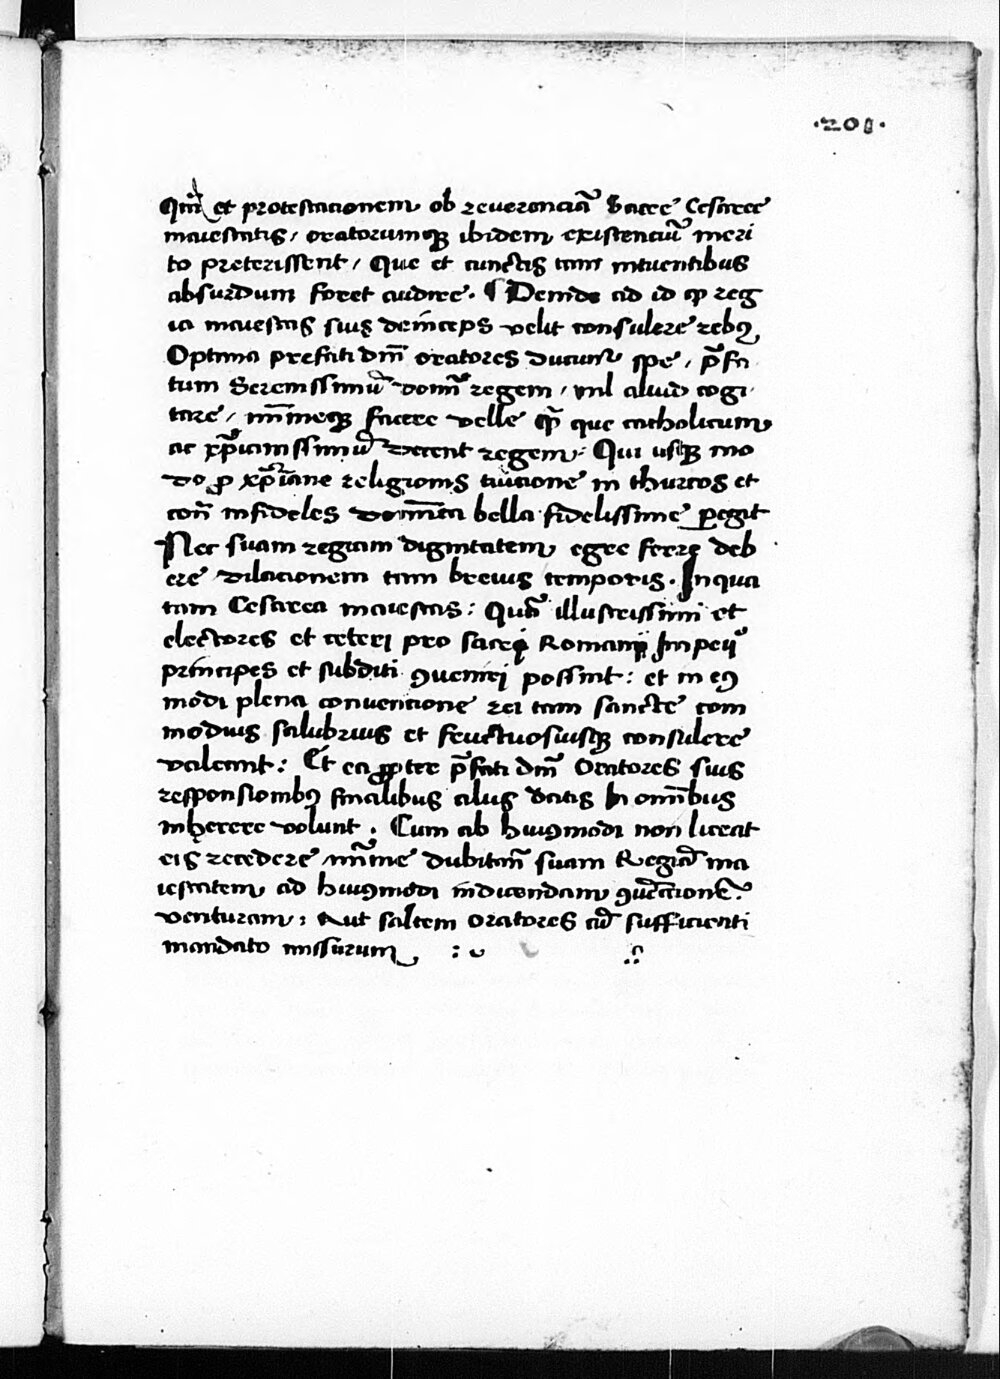 ·201·
Qm̄ et protestacionem ob reuerenciā Sacre Cesaree
maiestatis, oratorumqȝ ibidem existenciū meri
to preterissent, Que et cunctis tam intuentibus
absurdum foret audire. ¶ Deinde ad id ꝙ reg
ia maiestas suis deinceps velit consulere rebꝰ,
Optima prefati dn̄i oratores ducunt spe, p̄fa
tum Serenissimū domīn regem, nil aliud cogi
tare, mīmeqȝ facere velle qȝ que catholicum
ac xp̄ianissimū decent regem: Qui usqȝ mo
do ꝓ xp̄iane religionis tuicione in thurcos et
con̄ infideles domīca bella fidelissime ꝑegit
Nec suam regiam dignitatem egre ferre deb
ere dilacionem tam breuis temporis. In qua
tam Cesarea maiestas: Quā illustrissimi et
electores et ceteri pro sacri Romani Impeiiº
principes et subditi ꝯuenirj possint: et in eiꝰ
modi plena conuencione rei tam sancte com
modius salubrius et fructuosiusqȝ consulere
valeant: Et ea ꝓpter p̄fati dn̄i Oratores suis
responsionibꝰ finalibus alias datis In omībus
inherere volunt. Cum ab huiꝰmodi non liceat
eis recedere, mīme dubitān suam Regiā ma
iestatem ad huiꝰmodi indicendam ꝯuēcionē:
venturam: Aut saltem oratores cū sufficienti
mandato missurum